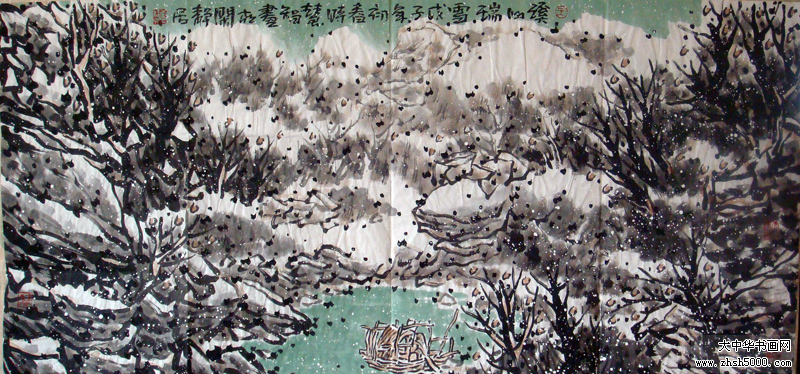 溪山瑞雪戊子年初春時畫於靜居
大中华书画网
www.zhsh5000.com